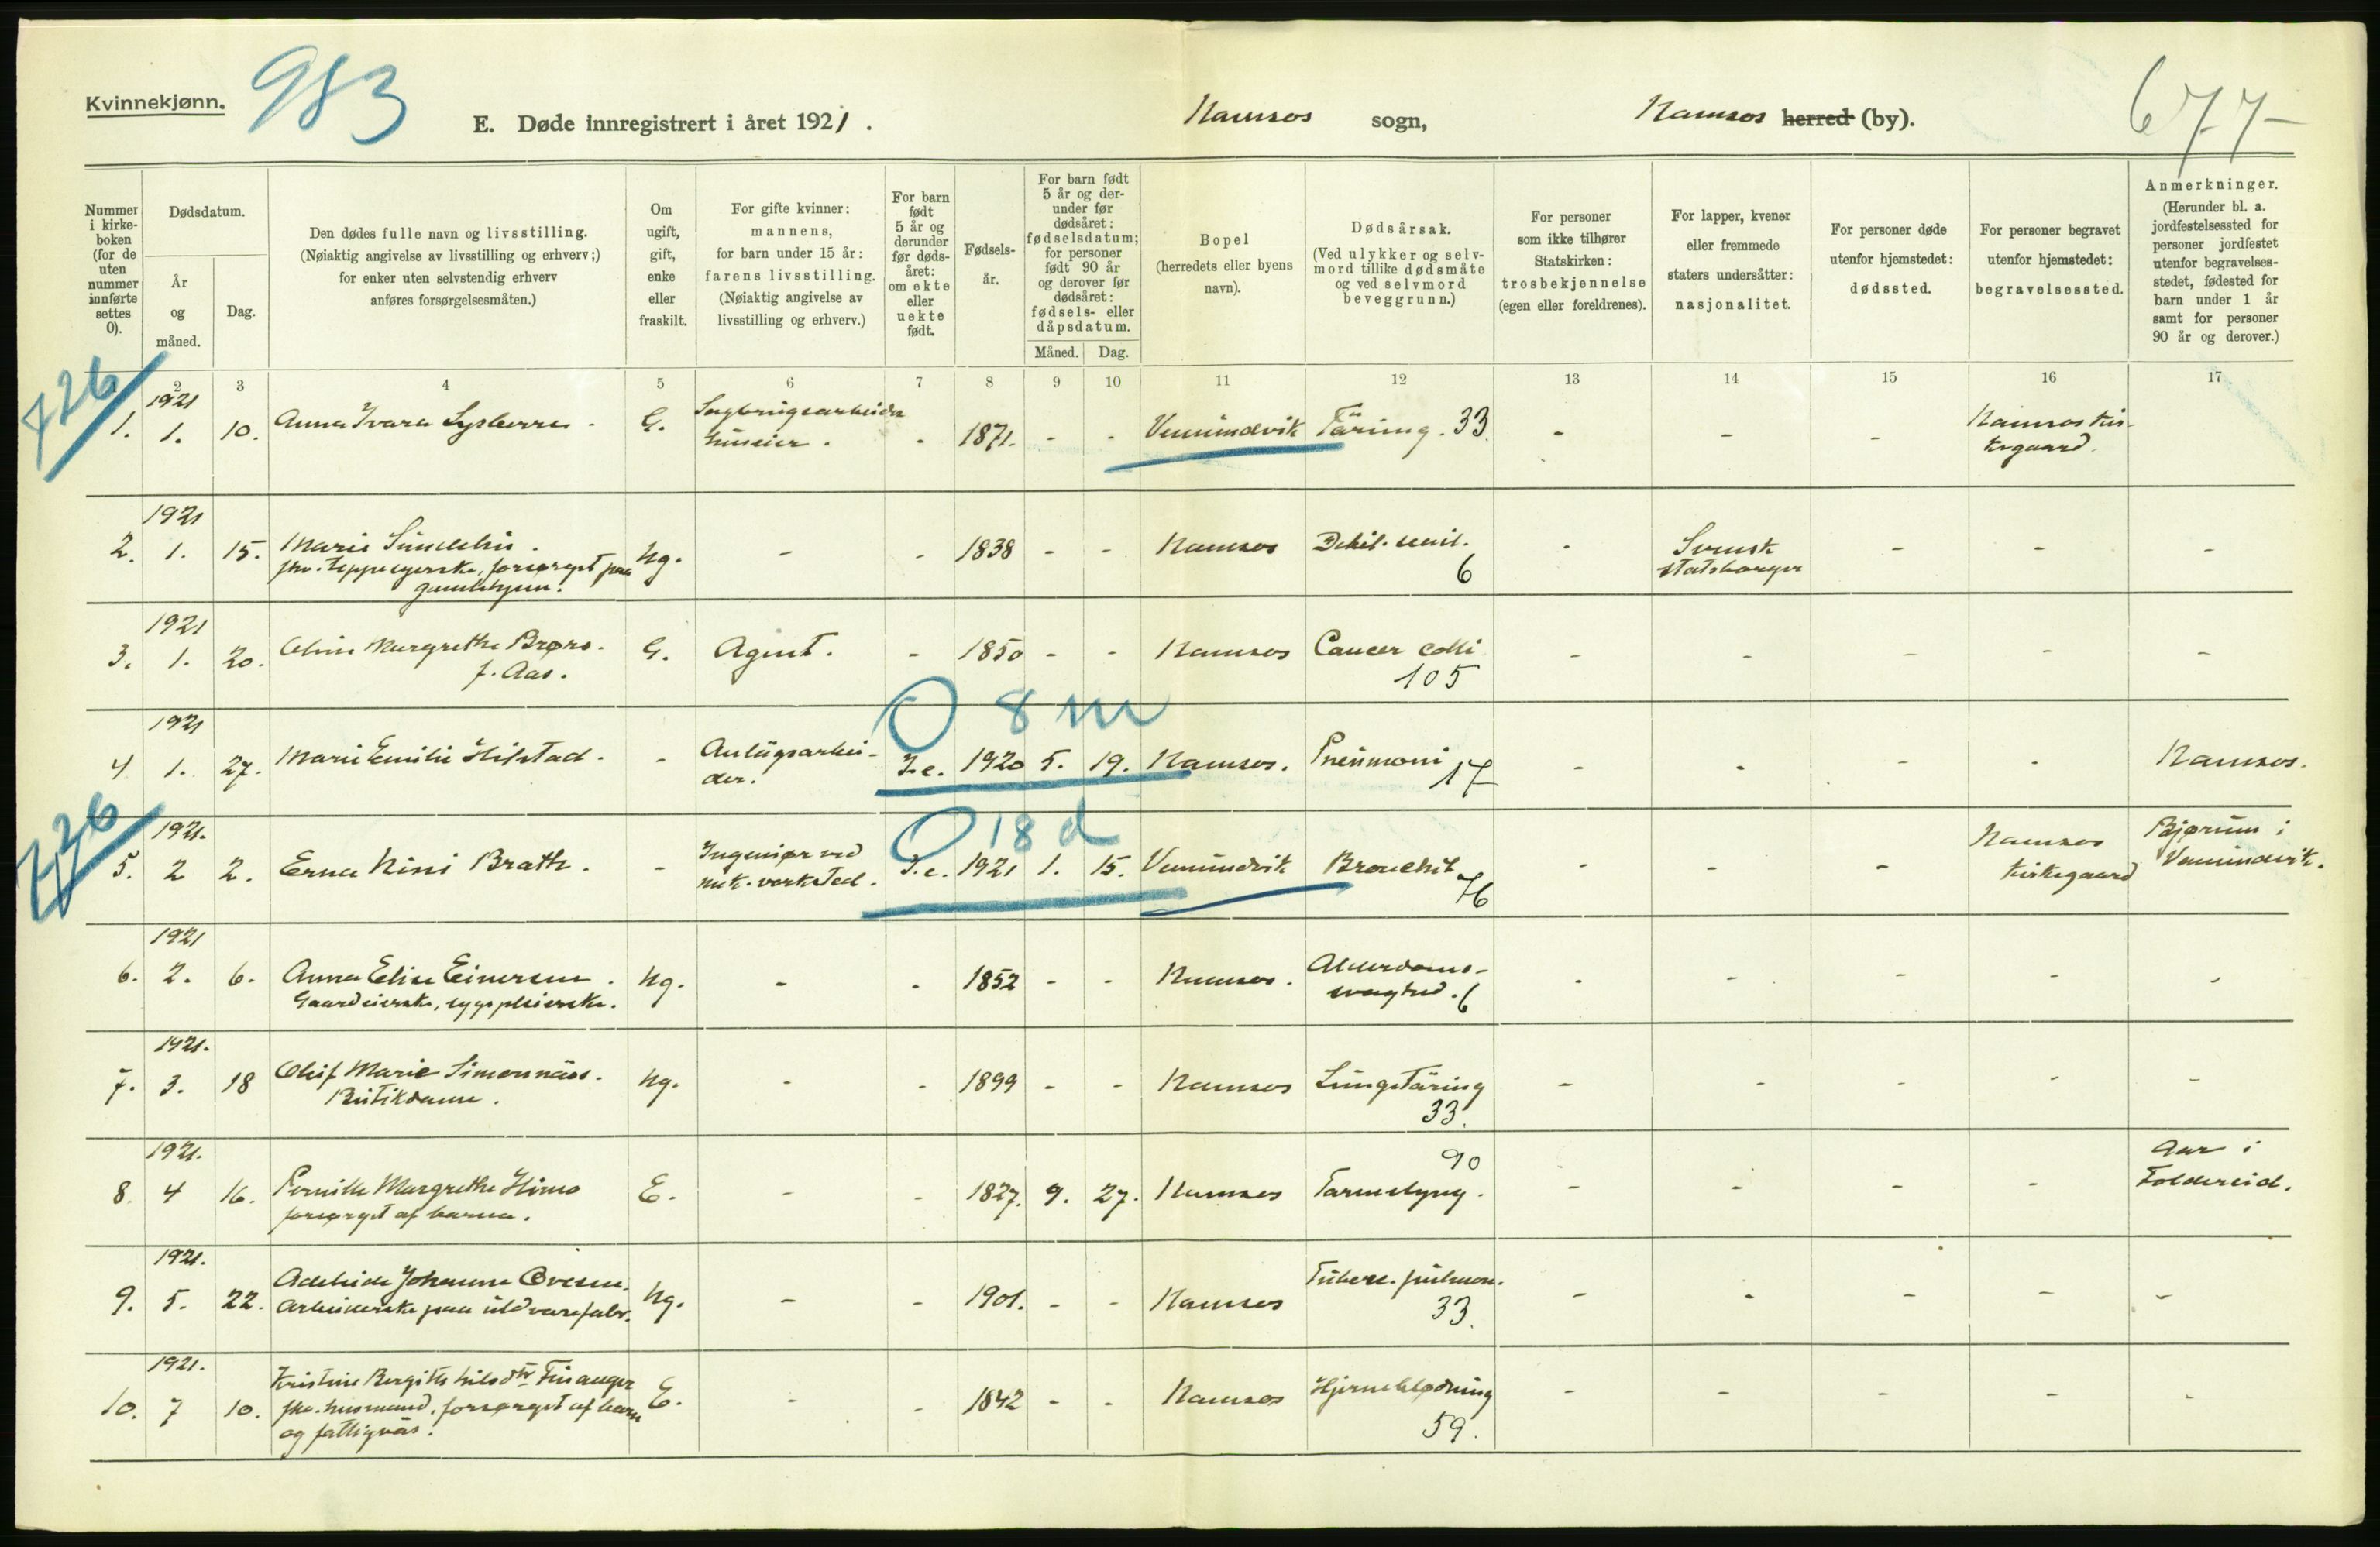 Kvinnekjønn.
983
E. Døde innregistrert i året 1921.
Namsos sogn,
Namsos herred (by).
677-
Nummer i kirkeboken (for de uten nummer innførte settes 0).
Dødsdatum.
År og måned.
Dag.
Den dødes fulle navn og livsstilling.
(Nøiaktig angivelse av livsstilling og erhverv;)
for enker uten selvstendig erhverv
anføres forsørgelsesmåten.)
Om ugift, gift, enke eller fraskilt.
For gifte kvinner: mannens, for barn under 15 år: farens livsstilling.
(Nøiaktig angivelse av livsstilling og erhverv.)
For barn født 5 år og derunder før dødsåret: om ekte eller uekte født.
Fødselsår.
For barn født 5 år og derunder før dødsåret: fødselsdatum; for personer født 90 år og derover før dødsåret: fødsels- eller dåpsdatum.
Måned. Dag.
Bopel (herredets eller byens navn).
Dødsårsak.
(Ved ulykker og selvmord tillike dødsmåte og ved selvmord beveggrunn.)
For personer som ikke tilhører Statskirken: trosbekjennelse (egen eller foreldrenes).
For lapper, kvener eller fremmede staters undersåtter: nasjonalitet.
For personer døde utenfor hjemstedet: dødssted.
For personer begravet utenfor hjemstedet: begravelsessted.
Anmerkninger.
(Herunder bl. a. jordfestelsessted for personer jordfestet utenfor begravelsesstedet, fødested for barn under 1 år samt for personer 90 år og derover.)
1 2 3 4 5 6 7 8 9 10 11 12 13 14 15 16 17
726
1921
1. 1. 10. Anna Ivara - G. Sagbrugsarbeider huseier. - 1871. - - Vemundvik Täring. 33. - - - Namsos kirkegaard.
1921
2. 1. 15. Marie - Ug. - - 1838 - - Namsos Debil. senil. 6 - Svensk statsborger - - -
fhv. teppesyerske, forsørget paa
gamlehjem.
1921
3. 1. 20. Margrethe Brørs. G. Agent. - 1850 - - Namsos Cancer colli 105 - - - - -
f. Aas.
0 8 m
1921
4 1. 27. Marie Emilie Hilstad. - Anlägsarbeider. I.e. 1920 5. 19. Namsos. Pneumoni 17 - - - - Namsos.
726
0 18 d
1921.
5. 2 2. Erna Nini Brath. - Ingeniør ved mek. verksted. I.e. 1921 1. 15. Vemundvik Bronchit 76 - - - Namsos kirkegaard Bjørum i Vemundvik.
1921
6. 2. 6. Anna Elise Einersen. Ug. - - 1852 - - Namsos. Alderdomssvaghed. 6 - - - - -
Gaardeierske, sygepleierske.
1921.
7. 3. 18 Marie Simonnäss. Ug. - - 1899 - - Namsos Lungetäring 33. - - - - -
Butikdame.
1921.
8. 4 16. Pernille Margrethe E. - - 1827. 9. 27. Namsos 90 Tarmslyng. - - - - i Foldereid.
forsørget af barna.
1921.
9. 5. 22. Adelheide Johanne Ovesen. Ug. - - 1901. - - Namsos Tuberc. pulmon. 33. - - - - -
Arbeiderske paa uldvarefabr.
1921.
10. 7 10. Kristine Bergitte Nilsdtr Finanger E. - - 1842 - - Namsos Hjerneblødning 59. - - - - -
fhv. husmand, forsørget af barn
og fattigväs.